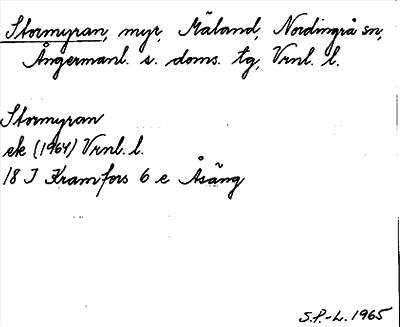 Stormyran, myr, Mäland, Nordingrå sn,
Ångermanl. s. doms. tg, Vrnl. l.
Stormyran
ek (1964) Vrnl. l.
18 J Kramfors 6 e Åsäng
S.P.-L. 1965